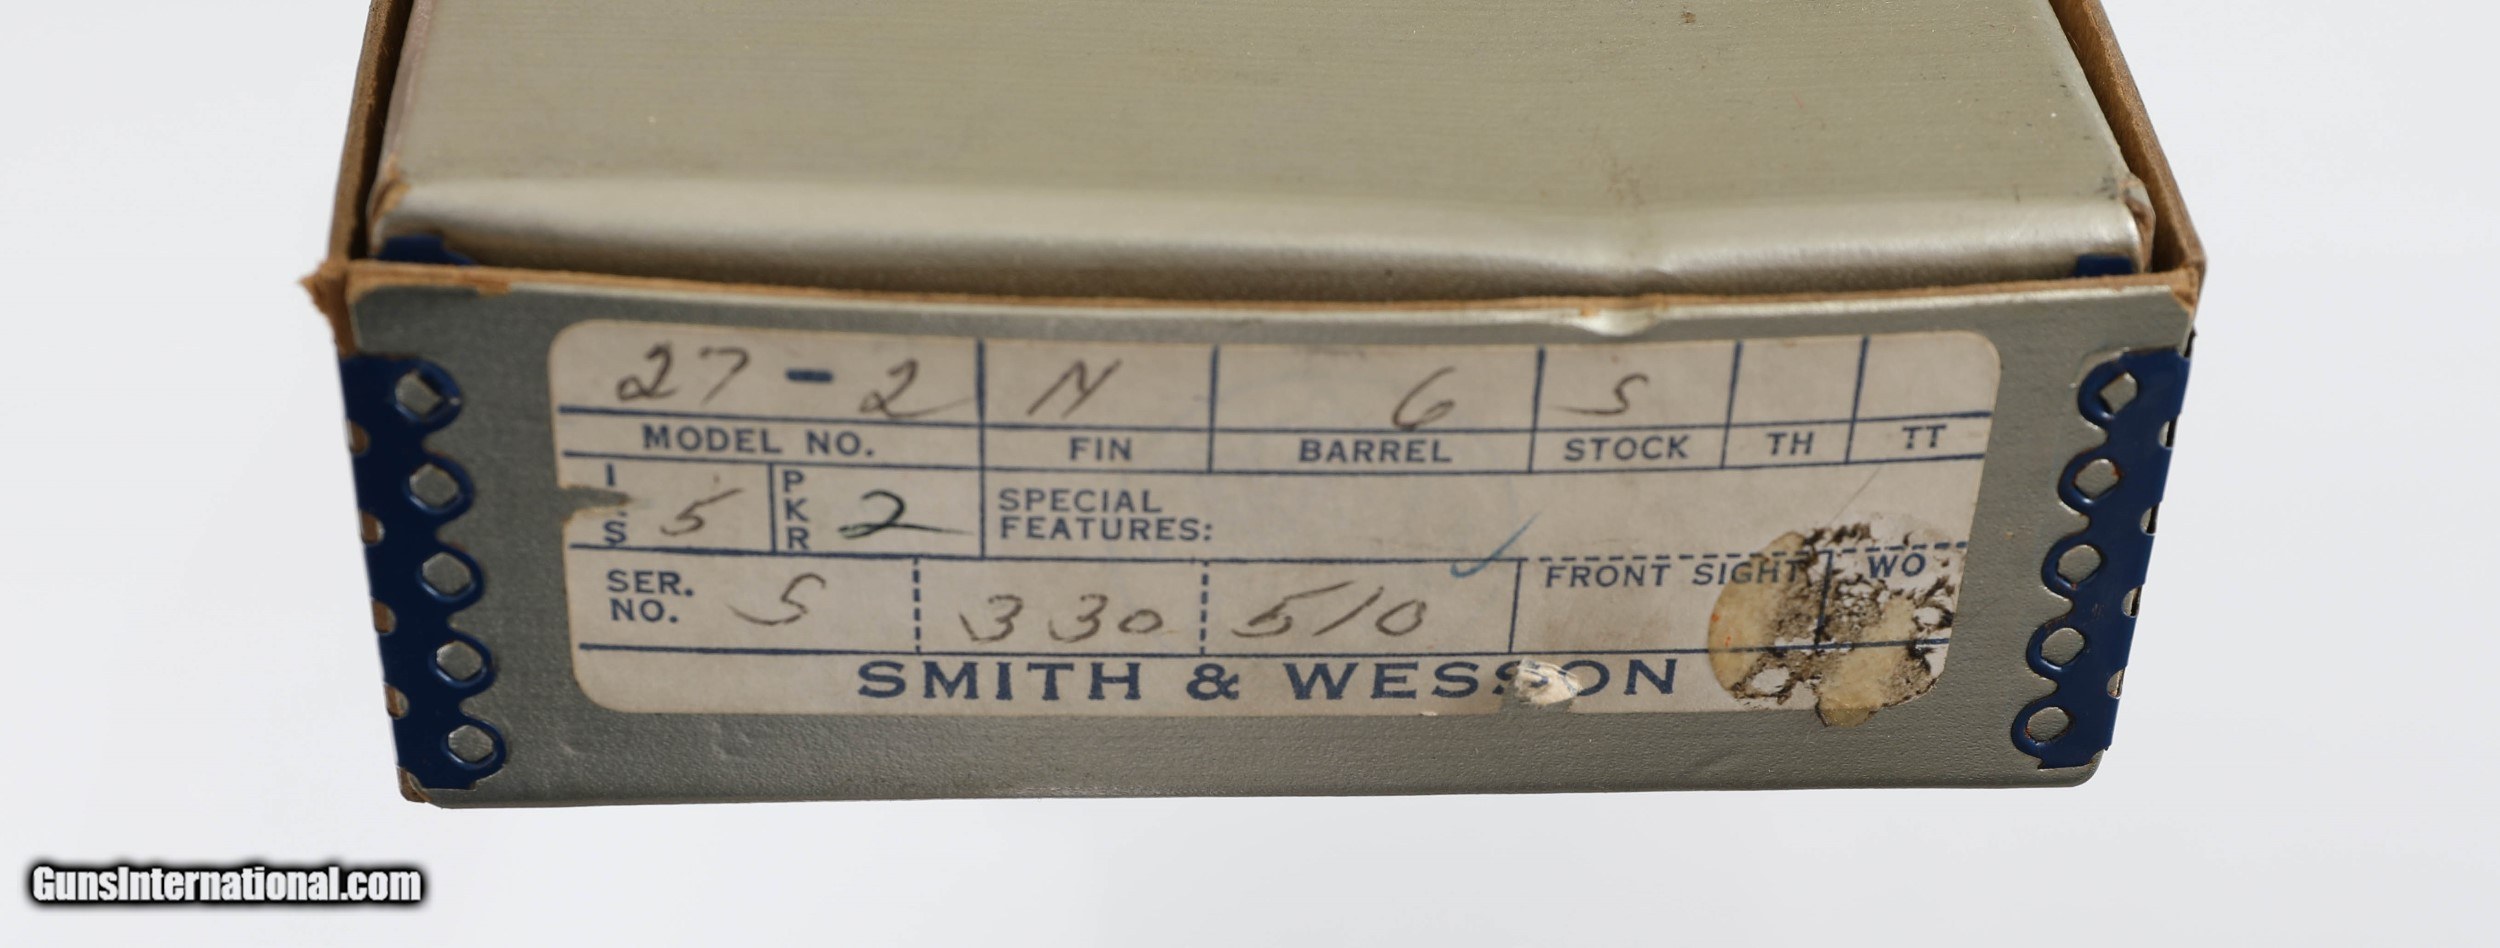 27 - 2 N 6 S
MODEL NO. FIN BARREL STOCK TH TT
INS 5 PKR 2 SPECIAL FEATURES:
SER. NO. S 330 510 ✓ FRONT SIGHT WO
SMITH & WESSON
GunsInternational.com